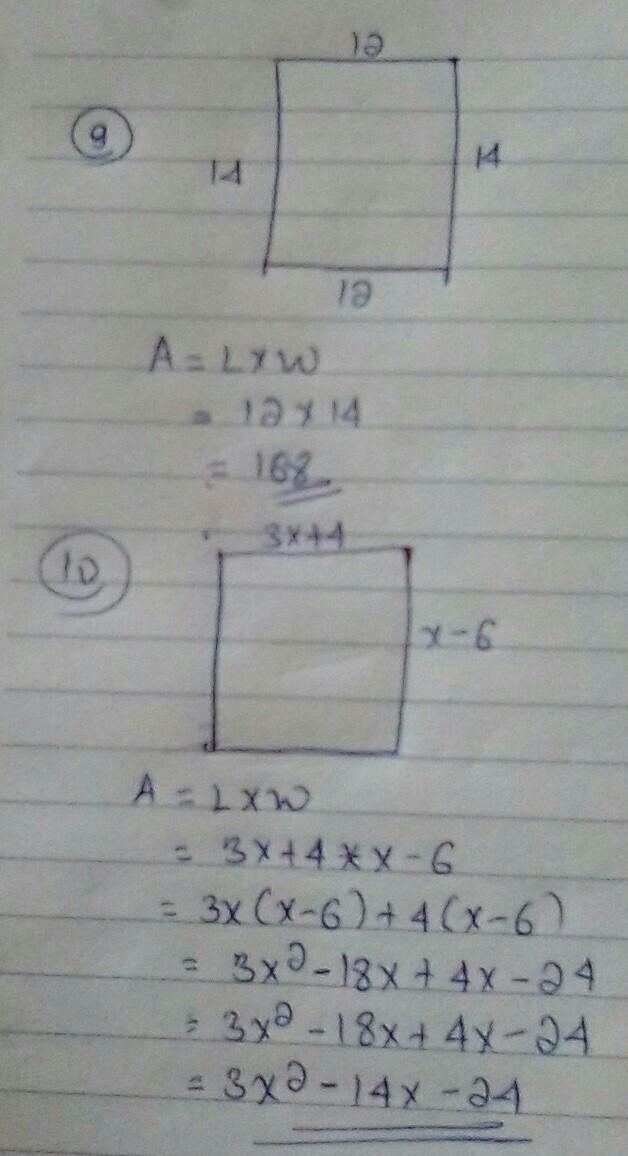 12
9
14
14
12
A = L x W
= 12 x 14
= 168
3x+4
10
x-6
A = L x W
= 3x+4 x x-6
= 3x(x-6)+4(x-6)
= 3x²-18x+4x-24
= 3x²-18x+4x-24
= 3x²-14x-24